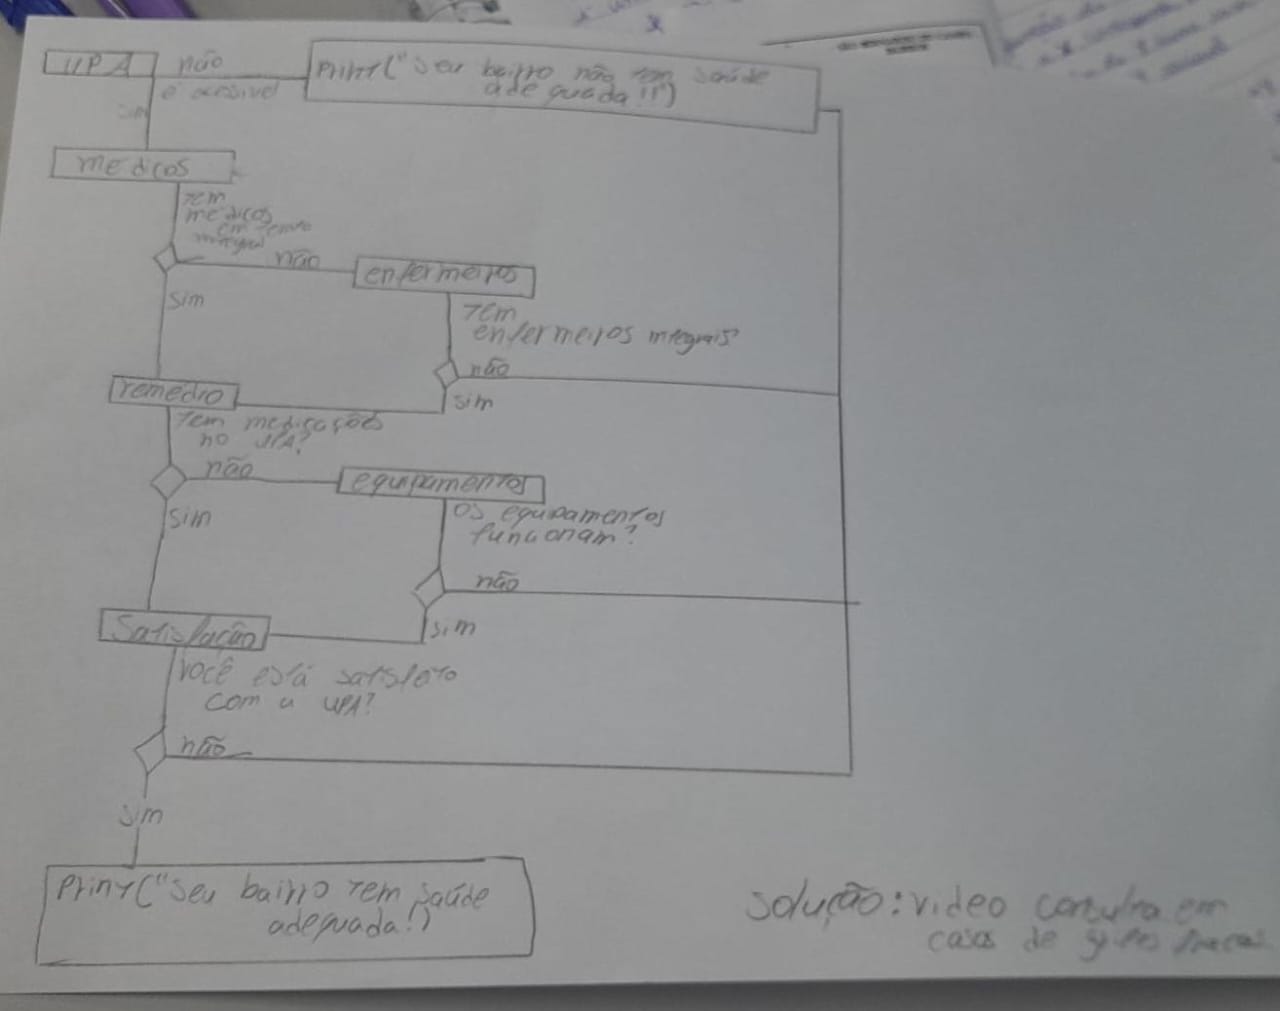 UPA
não
é acesivel
Print("Seu bairro não tem saúde
adequada!!")
sim
medicos
tem
medicos
em tempo
integral
não
enfermeiros
sim
tem
enfermeiros integrais
não
sim
remedio
tem medicações
no UPA?
não
equipamentos
sim
os equipamentos
funcionam?
não
sim
Satisfação
você está satisfeto
com a UPA?
não
sim
Print("Seu bairro tem saúde
adequada!)
solução: video consulta em
casos de